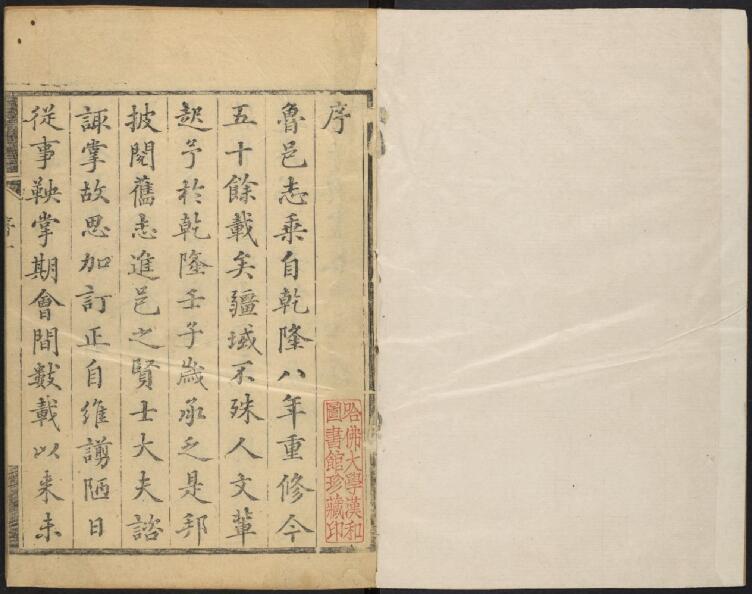 序
魯邑志乘自乾隆八年重修今
五十餘載矣疆域不殊人文軰
起予於乾隆壬子歲承乏是邦
披閱舊志進邑之賢士大夫諮
諏掌故思加訂正自維謭陋日
從事鞅掌期會間數載以来未
序一
哈佛大學漢和
圖書館珍藏印